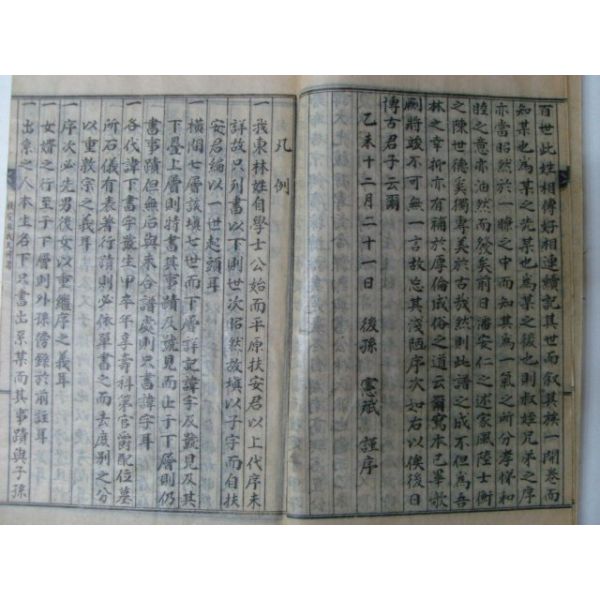 百世此姓相傳好相連續記其世而叙其族一開卷而
知某也為某之先某也為某之後也則叔姪兄弟之序
亦當昭然於一瞭之中而知其為一氣之所分孝悌和
睦之意亦油然而發矣前日潘安仁之述家風陸士衡
之陳世德奚獨專美於古哉然則此譜之成不但為吾
林之幸抑亦有補於厚倫成俗之道云爾寫本已畢歌
劂將竣不可無一言故忘其淺陋序次如右以俟後日
博古君子云爾
乙未十二月二十一日 後孫 憲斌 謹序
凡例
一我東林姓自學士公始而平原扶安君以上代序未
詳故只列書以下則世次昭然故塡以子字而自扶
安君編以一世起頭耳
一橫間七層該塡七世而下層詳記諱字及號見而其
下曡上層則特書其事蹟及號見而止于下層則仍
書事蹟但無后與未合譜處則只書諱字耳
一各代諱下書字號生甲卒年享壽科第官爵配位墓
所石儀有表著行蹟則必依單書之而去庶別之分
以重敦宗之義耳
一序次必先男後女以重繼序之義耳
一女婿之行至于下層則外孫傍錄於前註耳
一出系之人本生名下只書出系某而其事蹟與子孫